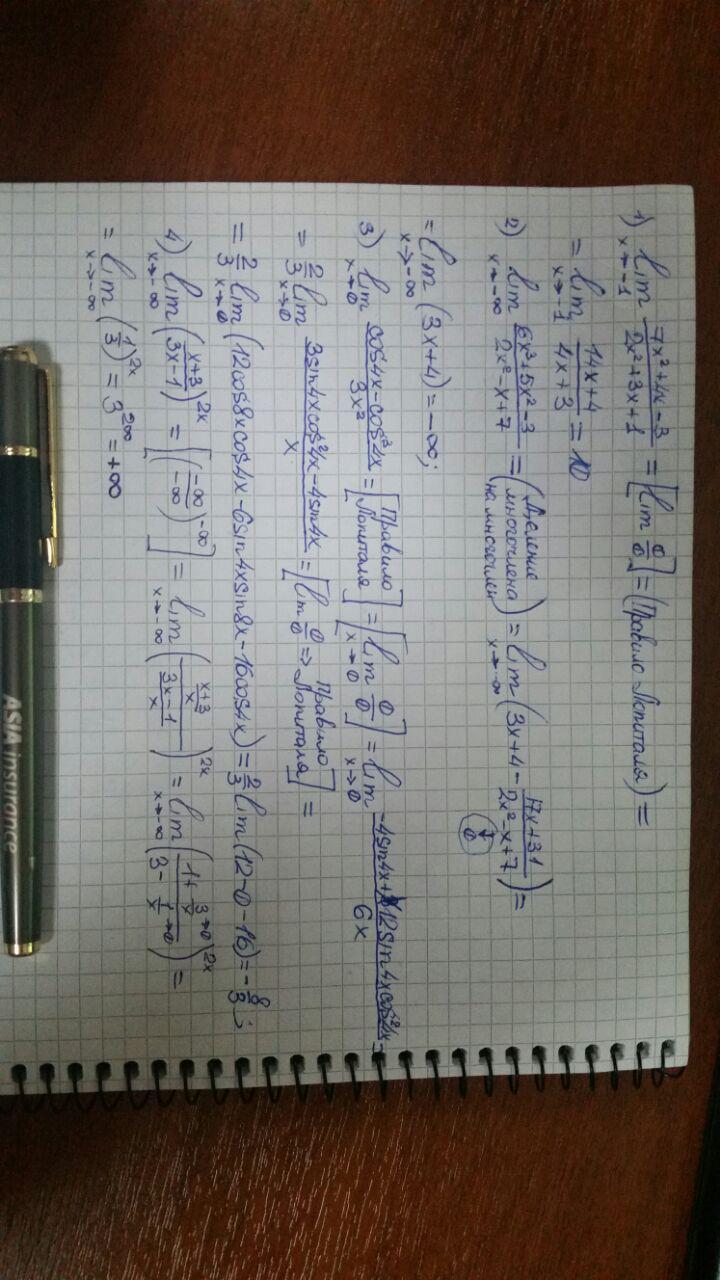 1) lim x→-1 (7x²+4x-3)/(2x²+3x+1) = [lim 0/0] = (Правило Лопиталя) =
= lim x→-1 (14x+4)/(4x+3) = 10
2) lim x→-∞ (6x³+5x²-3)/(2x²-x+7) = (Деление многочлена на многочлен) = lim x→-∞ (3x+4 - (17x+31)/(2x²-x+7) → 0) =
= lim x→-∞ (3x+4) = -∞;
3) lim x→0 (cos4x-cos³4x)/(3x²) = [Правило Лопиталя] = [lim x→0 0/0] = lim x→0 (-4sin4x+12sin4xcos²4x)/(6x) =
= 2/3 lim x→0 (3sin4xcos²4x-4sin4x)/x = [lim 0/0 ⇒ Правило Лопиталя] =
= 2/3 lim x→0 (12cos8xcos4x-6sin4xsin8x-16cos4x) = 2/3 lim (12-0-16) = -8/3;
4) lim x→-∞ ((x+3)/(3x-1))^2x = [(-∞/-∞)^-∞] = lim x→-∞ (((x+3)/x)/((3x-1)/x))^2x = lim x→-∞ ((1+3/x→0)/(3-1/x→0))^2x =
= lim x→-∞ (1/3)^2x = 3^2∞ = +∞
ASIA insurance